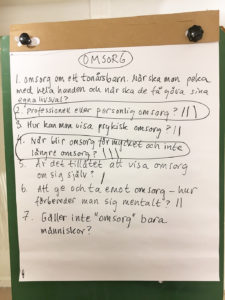 OMSORG
1. omsorg om ett tonårsbarn. När ska man peka
med hela handen och när ska de få göva sina
egna livsval?
2. professionell eller personlig omsorg? |||
3. Hur kan man visa psykisk omsorg? ||
4. När blir omsorg för mycket och inte
längre omsorg? |||
5. Är det tillåtet att visa omsorg
om sig själv? |
6. Att ge och ta emot omsorg - hur
förbereder man sig mentalt? ||
7. Gäller inte "omsorg" bara
människor?